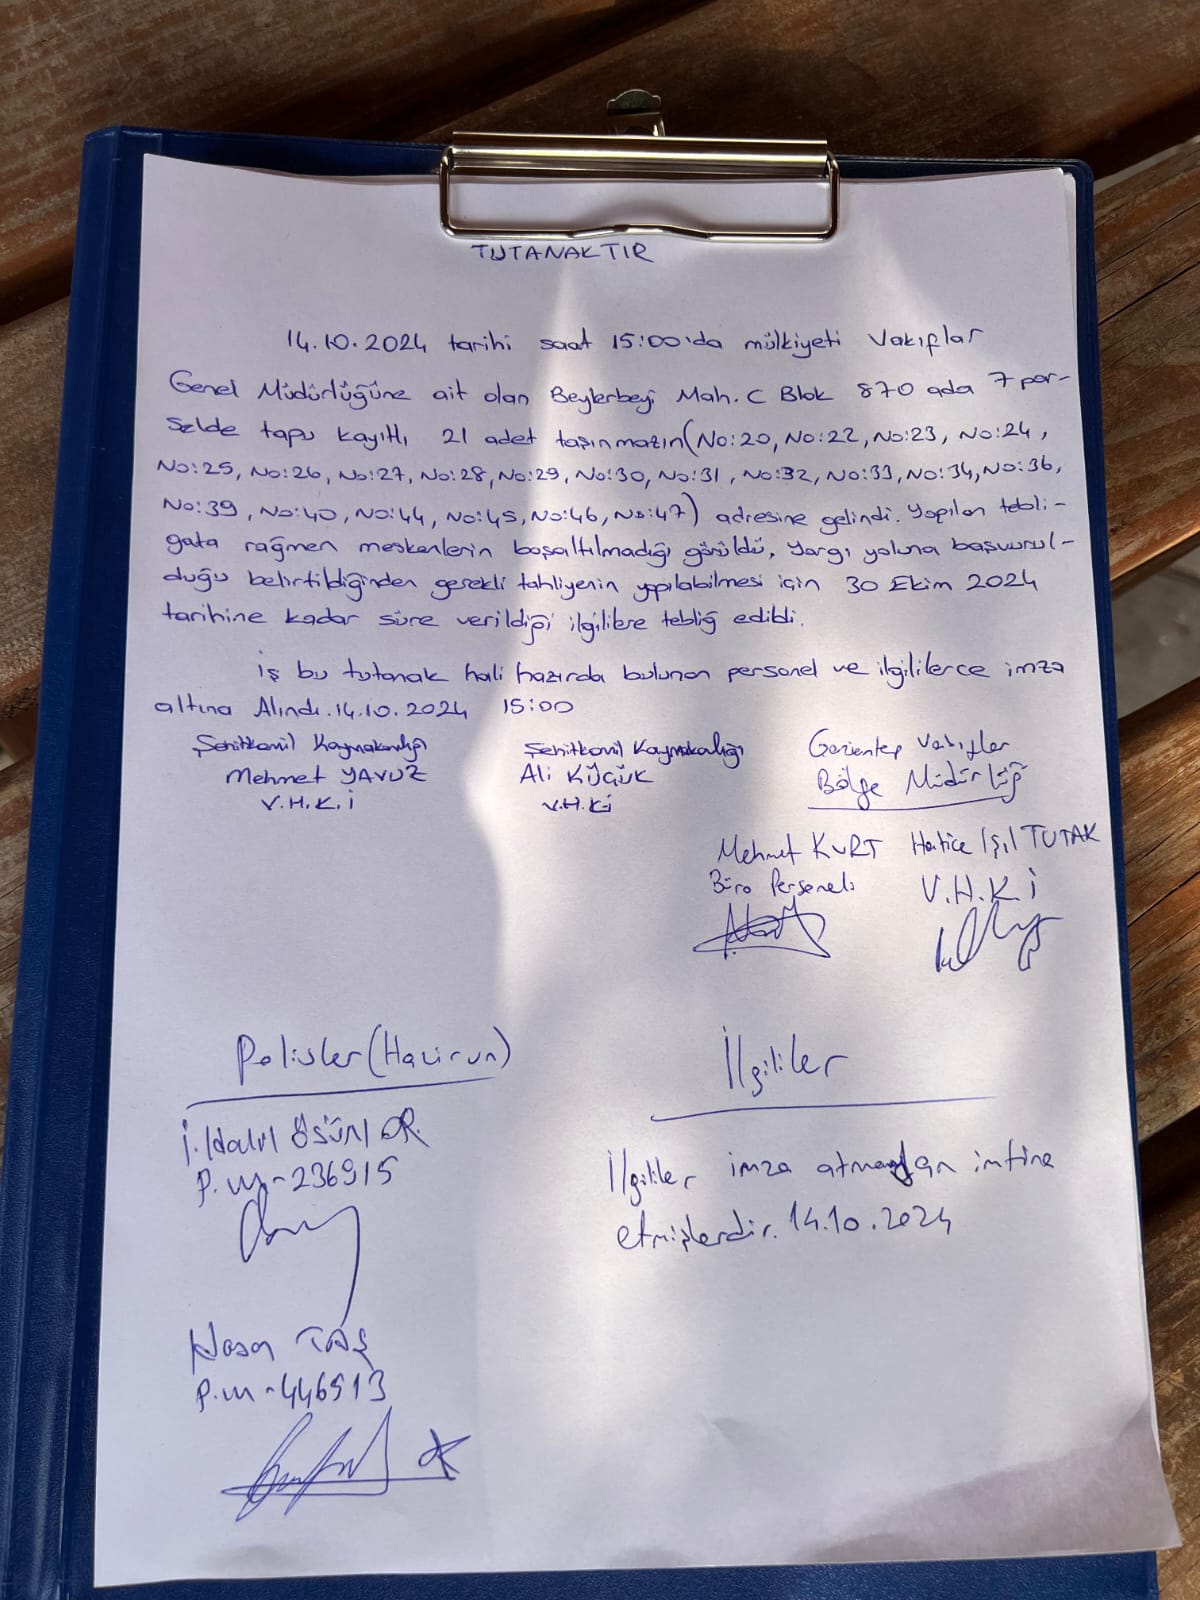 TUTANAKTIR
14.10.2024 tarihi saat 15:00'da mülkiyeti Vakıflar
Genel Müdürlüğüne ait olan Beylerbeyi Mah. C Blok 870 ada 7 par-
selde tapu kayıtlı 21 adet taşınmazın (No:20, No:22, No:23, No:24,
No:25, No:26, No:27, No:28, No:29, No:30, No:31, No:32, No:33, No:34, No:36,
No:39, No:40, No:44, No:45, No:46, No:47) adresine gelindi. Yapılan tebli-
gata rağmen meskenlerin boşaltılmadığı görüldü, Yargı yoluna başvurul-
duğu belirtildiğinden gerekli tahliyenin yapılabilmesi için 30 Ekim 2024
tarihine kadar süre verildiği ilgililere tebliğ edildi.
iş bu tutanak hali hazırda bulunan personel ve ilgililerce imza
altına Alındı. 14.10.2024 15:00
Şehitkamil Kaymakamlığı Şehitkamil Kaymakamlığı Gaziantep Vakıflar
Mehmet YAVUZ Ali KÜÇÜK Bölge Müdürlüğü
V.H.K.İ V.H.Kİ
Mehmet KURT Hatice Işıl TUTAK
Büro Personeli V.H.K.İ
Polisler (Hazirun) İlgililer
İ. Halil
P.M-236915
İlgililer imza atmaktan imtina
etmişlerdir. 14.10.2024
Hasan TAŞ
P.M-446513